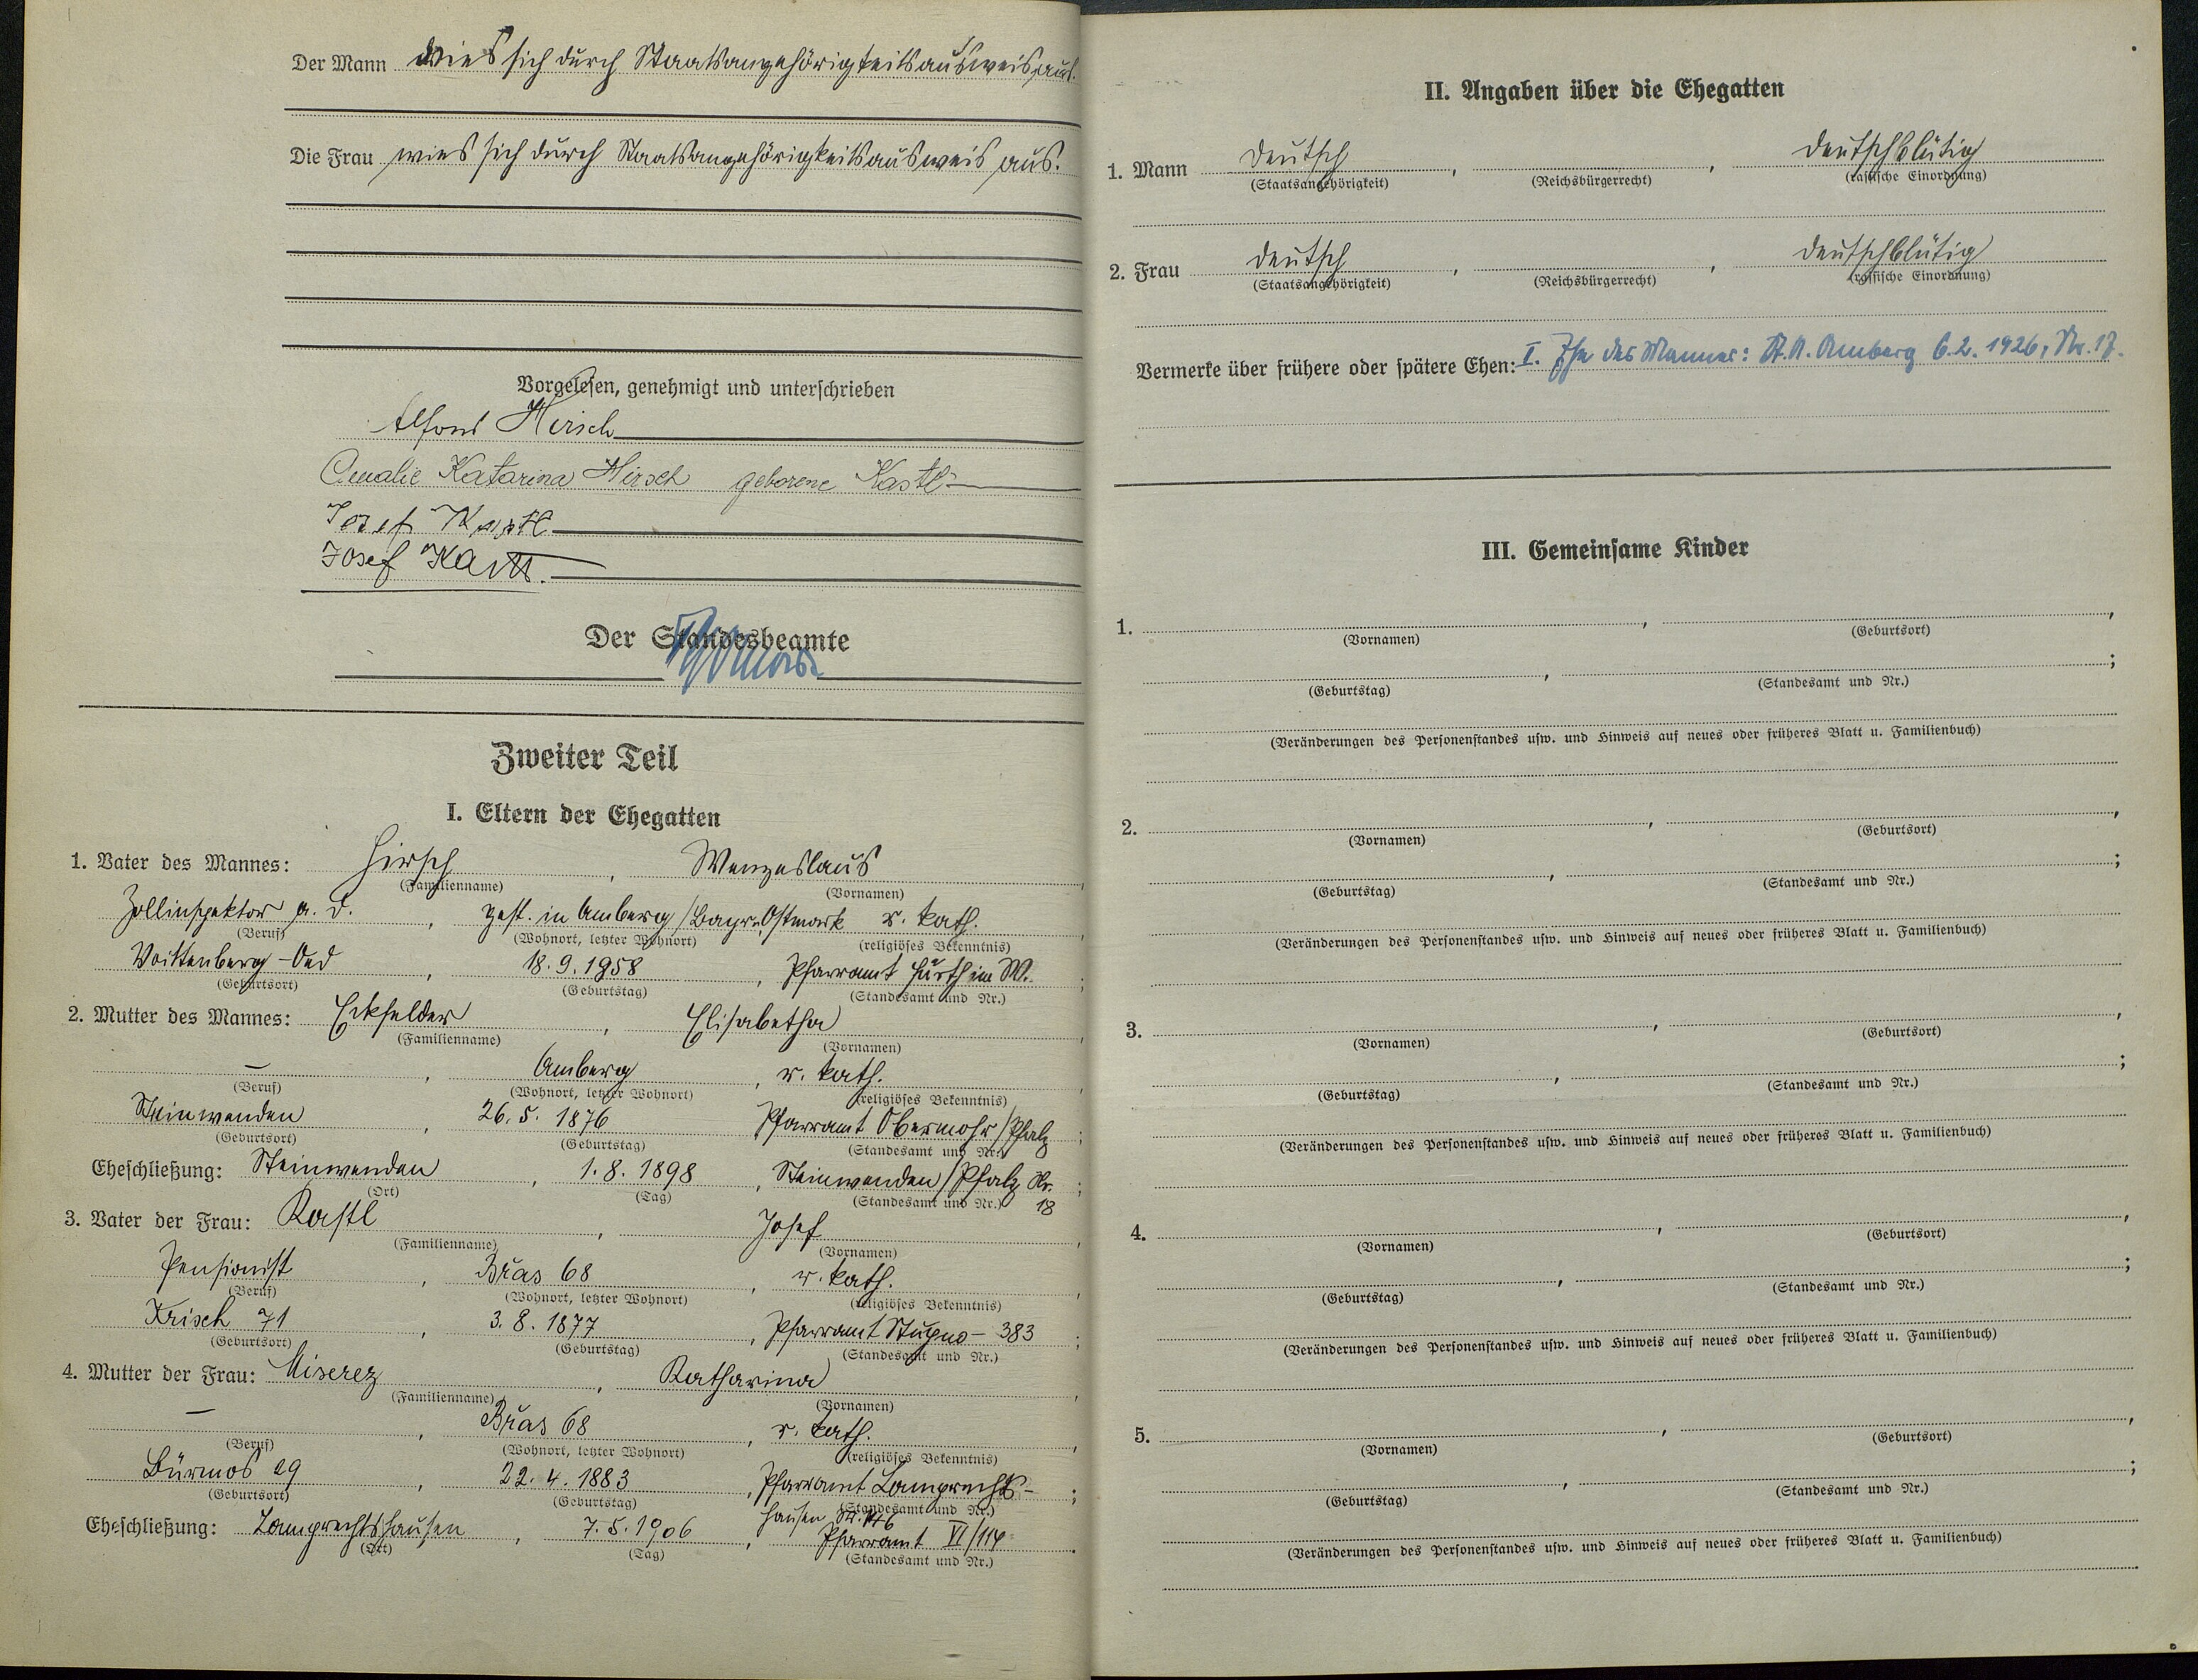 Der Mann wies sich durch Staatsangehörigkeitsausweis aus.
Die Frau wies sich durch Staatsangehörigkeitsausweis aus.
Vorgelesen, genehmigt und unterschrieben
Alfons Hirsch
Amalie Katarina Hirsch geborene Kastl
Josef Kastl
Josef
Der Standesbeamte
Zweiter Teil
I. Eltern der Ehegatten
1. Vater des Mannes: Hirsch, Wenzeslaus,
(Familienname) (Vornamen)
Zollinspektor a. D., gest. in Amberg/Bayr. Ostmark r. kath.
(Beruf) (Wohnort, letzter Wohnort) (religiöses Bekenntnis)
Voittenberg-Oed, 18.9.1858, Pfarramt Furth im W.;
(Geburtsort) (Geburtstag) (Standesamt und Nr.)
2. Mutter des Mannes: Eckfelder, Elisabetha,
(Familienname) (Vornamen)
—, Amberg, r. kath.
(Beruf) (Wohnort, letzter Wohnort) (religiöses Bekenntnis)
Steinwenden, 26.5.1876 Pfarramt Obermohr/Pfalz;
(Geburtsort) (Geburtstag) (Standesamt und Nr.)
Eheschließung: Steinwenden, 1.8.1898, Steinwenden/Pfalz Nr. 18;
(Ort) (Tag) (Standesamt und Nr.)
3. Vater der Frau: Kastl, Josef,
(Familienname) (Vornamen)
Pensionist, Břas 68, r. kath.
(Beruf) (Wohnort, letzter Wohnort) (religiöses Bekenntnis)
Krisch 71, 3.8.1877, Pfarramt Stupno - 383;
(Geburtsort) (Geburtstag) (Standesamt und Nr.)
4. Mutter der Frau: Miserez, Katharina,
(Familienname) (Vornamen)
—, Břas 68, r. kath.
(Beruf) (Wohnort, letzter Wohnort) (religiöses Bekenntnis)
Bürmos 29, 22.4.1883, Pfarramt Lamprechts-;
(Geburtsort) (Geburtstag) (Standesamt und Nr.)
hausen
Eheschließung: Lamprechtshausen, 7.5.1906, Pfarramt VI/114.
(Ort) (Tag) (Standesamt und Nr.)
II. Angaben über die Ehegatten
1. Mann deutsch, , deutschblütig
(Staatsangehörigkeit) (Reichsbürgerrecht) (rassische Einordnung)
2. Frau deutsch, , deutschblütig
(Staatsangehörigkeit) (Reichsbürgerrecht) (rassische Einordnung)
Vermerke über frühere oder spätere Ehen: I. Ehe des Mannes: St.A. Amberg 6.2.1926, Nr. 17.
III. Gemeinsame Kinder
1. , ,
(Vornamen) (Geburtsort)
, ;
(Geburtstag) (Standesamt und Nr.)
(Veränderungen des Personenstandes usw. und Hinweis auf neues oder früheres Blatt u. Familienbuch)
2. , ,
(Vornamen) (Geburtsort)
, ;
(Geburtstag) (Standesamt und Nr.)
(Veränderungen des Personenstandes usw. und Hinweis auf neues oder früheres Blatt u. Familienbuch)
3. , ,
(Vornamen) (Geburtsort)
, ;
(Geburtstag) (Standesamt und Nr.)
(Veränderungen des Personenstandes usw. und Hinweis auf neues oder früheres Blatt u. Familienbuch)
4. , ,
(Vornamen) (Geburtsort)
, ;
(Geburtstag) (Standesamt und Nr.)
(Veränderungen des Personenstandes usw. und Hinweis auf neues oder früheres Blatt u. Familienbuch)
5. , ,
(Vornamen) (Geburtsort)
, ;
(Geburtstag) (Standesamt und Nr.)
(Veränderungen des Personenstandes usw. und Hinweis auf neues oder früheres Blatt u. Familienbuch)